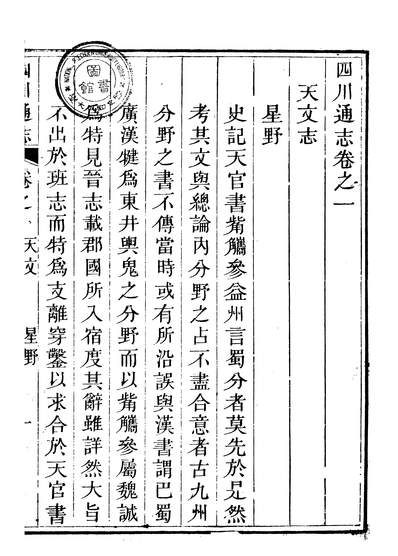 四川通志卷之一
天文志
星野
史記天官書觜觿參益州言蜀分者莫先於是然
考其文與總論內分野之占不盡合意者古九州
分野之書不傳當時或有所沿誤與漢書謂巴蜀
廣漢犍爲東井輿鬼之分野而以觜觿參屬魏誠
爲特見晉志載郡國所入宿度其辭雖詳然大旨
不出於班志而特爲支離穿鑿以求合於天官書
四川通志 卷之一 天文 星野 一